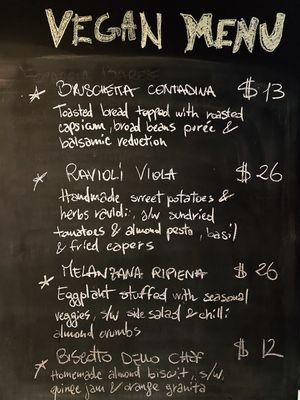 VEGAN MENU
BRUSCHETTA CONTADINA $13
Toasted bread topped with roasted
capsicum, broad beans purée &
balsamic reduction
RAVIOLI VIOLA $26
Handmade sweet potatoes &
herbs ravioli, s/w sundried
tomatoes & almond pesto, basil
& fried capers
MELANZANA RIPIENA $26
Eggplant stuffed with seasonal
veggies, s/w side salad & chilli
almond crumbs
BISCOTTO DELLO CHEF $12
Homemade almond biscuit, s/w.
quince jam & orange granita